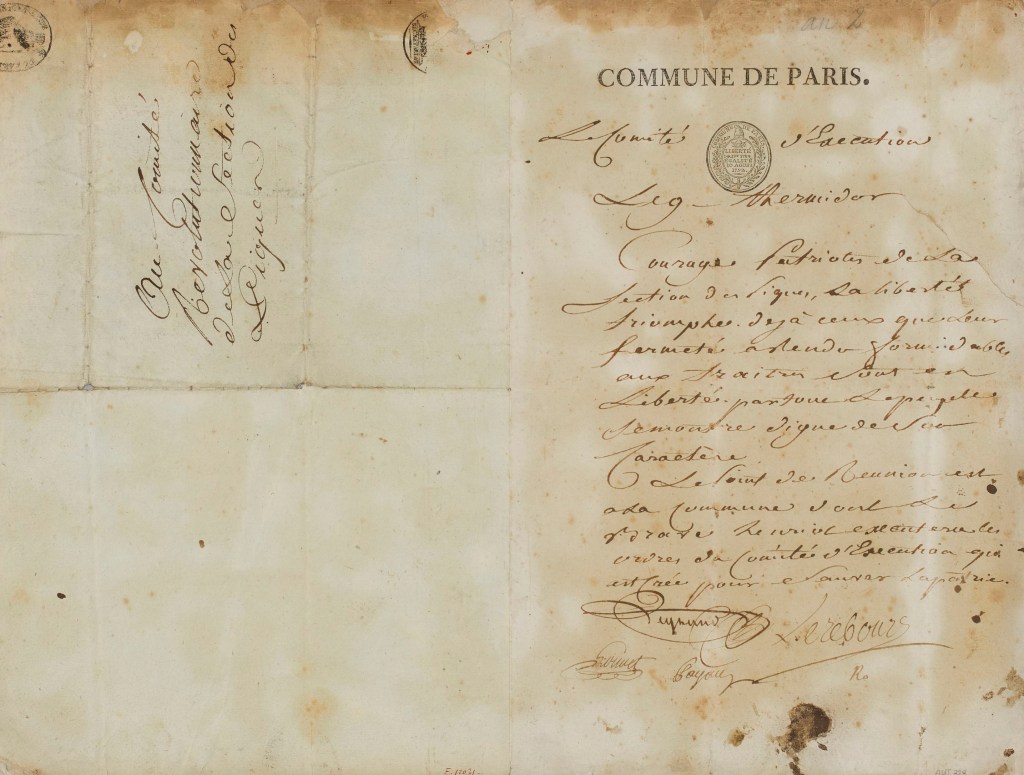 Au Comité
Revolutionnaire
de La Section des
Piques
an 2
COMMUNE DE PARIS.
Le Comité d'Execution
LIBERTÉ
EGALITÉ
Le 9 thermidor
Courage Patriotes de La
Section des Piques, La liberté
triomphe. deja ceux que Leur
fermeté a Rendu formidables
aux traitres sont en
Liberté. partout Le peuple
se montre digne de Son
Caractère
Le Point de Reunion est
a La Commune dont Le
brave henriot executera les
ordres du Comité d'Execution qui
est Crée pour Sauver La patrie.
Legrand Lerebours
Louvet Payan Ro